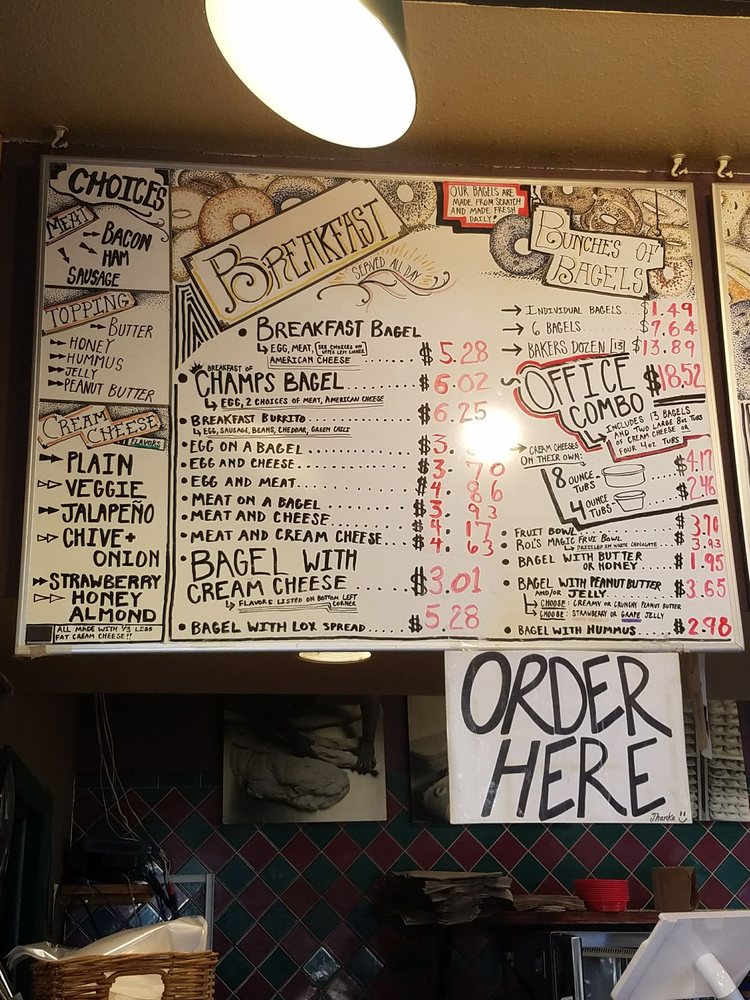 CHOICES
MEAT
BACON
HAM
SAUSAGE
TOPPING
BUTTER
HONEY
HUMMUS
JELLY
PEANUT BUTTER
CREAM CHEESE
FLAVORS
PLAIN
VEGGIE
JALAPEÑO
CHIVE+
ONION
STRAWBERRY
HONEY
ALMOND
ALL MADE WITH 1/3 LESS
FAT CREAM CHEESE!!
BREAKFAST
SERVED ALL DAY
BREAKFAST BAGEL
EGG, MEAT, SEE CHOICES ON
UPPER LEFT CORNER
AMERICAN CHEESE ........ $5.28
BREAKFAST OF
CHAMPS BAGEL ........ $6.02
EGG, 2 CHOICES OF MEAT, AMERICAN CHEESE
BREAKFAST BURRITO ........ $6.25
EGG, SAUSAGE, BEANS, CHEDDAR, GREEN CHILI
EGG ON A BAGEL ........ $3.
EGG AND CHEESE ........ $3.70
EGG AND MEAT ........ $4.86
MEAT ON A BAGEL ........ $3.93
MEAT AND CHEESE ........ $4.17
MEAT AND CREAM CHEESE ... $4.63
BAGEL WITH
CREAM CHEESE ........ $3.01
FLAVORS LISTED ON BOTTOM LEFT
CORNER
BAGEL WITH LOX SPREAD ..... $5.28
OUR BAGELS ARE
MADE FROM SCRATCH
AND MADE FRESH
DAILY!
BUNCHES OF
BAGELS
INDIVIDUAL BAGELS ... $1.49
6 BAGELS ........ $7.64
BAKERS DOZEN [13] $13.89
OFFICE
COMBO
$18.52
INCLUDES 13 BAGELS
AND TWO LARGE 8oz TUBS
OF CREAM CHEESE OR
FOUR 4oz TUBS
CREAM CHEESES
ON THEIR OWN:
8 OUNCE
TUBS
$4.17
4 OUNCE
TUBS
$2.46
FRUIT BOWL ........ $3.70
ROI'S MAGIC FRUI BOWL ........ $3.93
DRIZZLED IN WHITE CHOCOLATE
BAGEL WITH BUTTER
OR HONEY ........ $1.95
BAGEL WITH PEANUT BUTTER
AND/OR JELLY ........ $3.65
CHOOSE: CREAMY OR CRUNCHY PEANUT BUTTER
CHOOSE: STRAWBERRY OR GRAPE JELLY
BAGEL WITH HUMMUS ........ $2.78
ORDER
HERE
Thanks